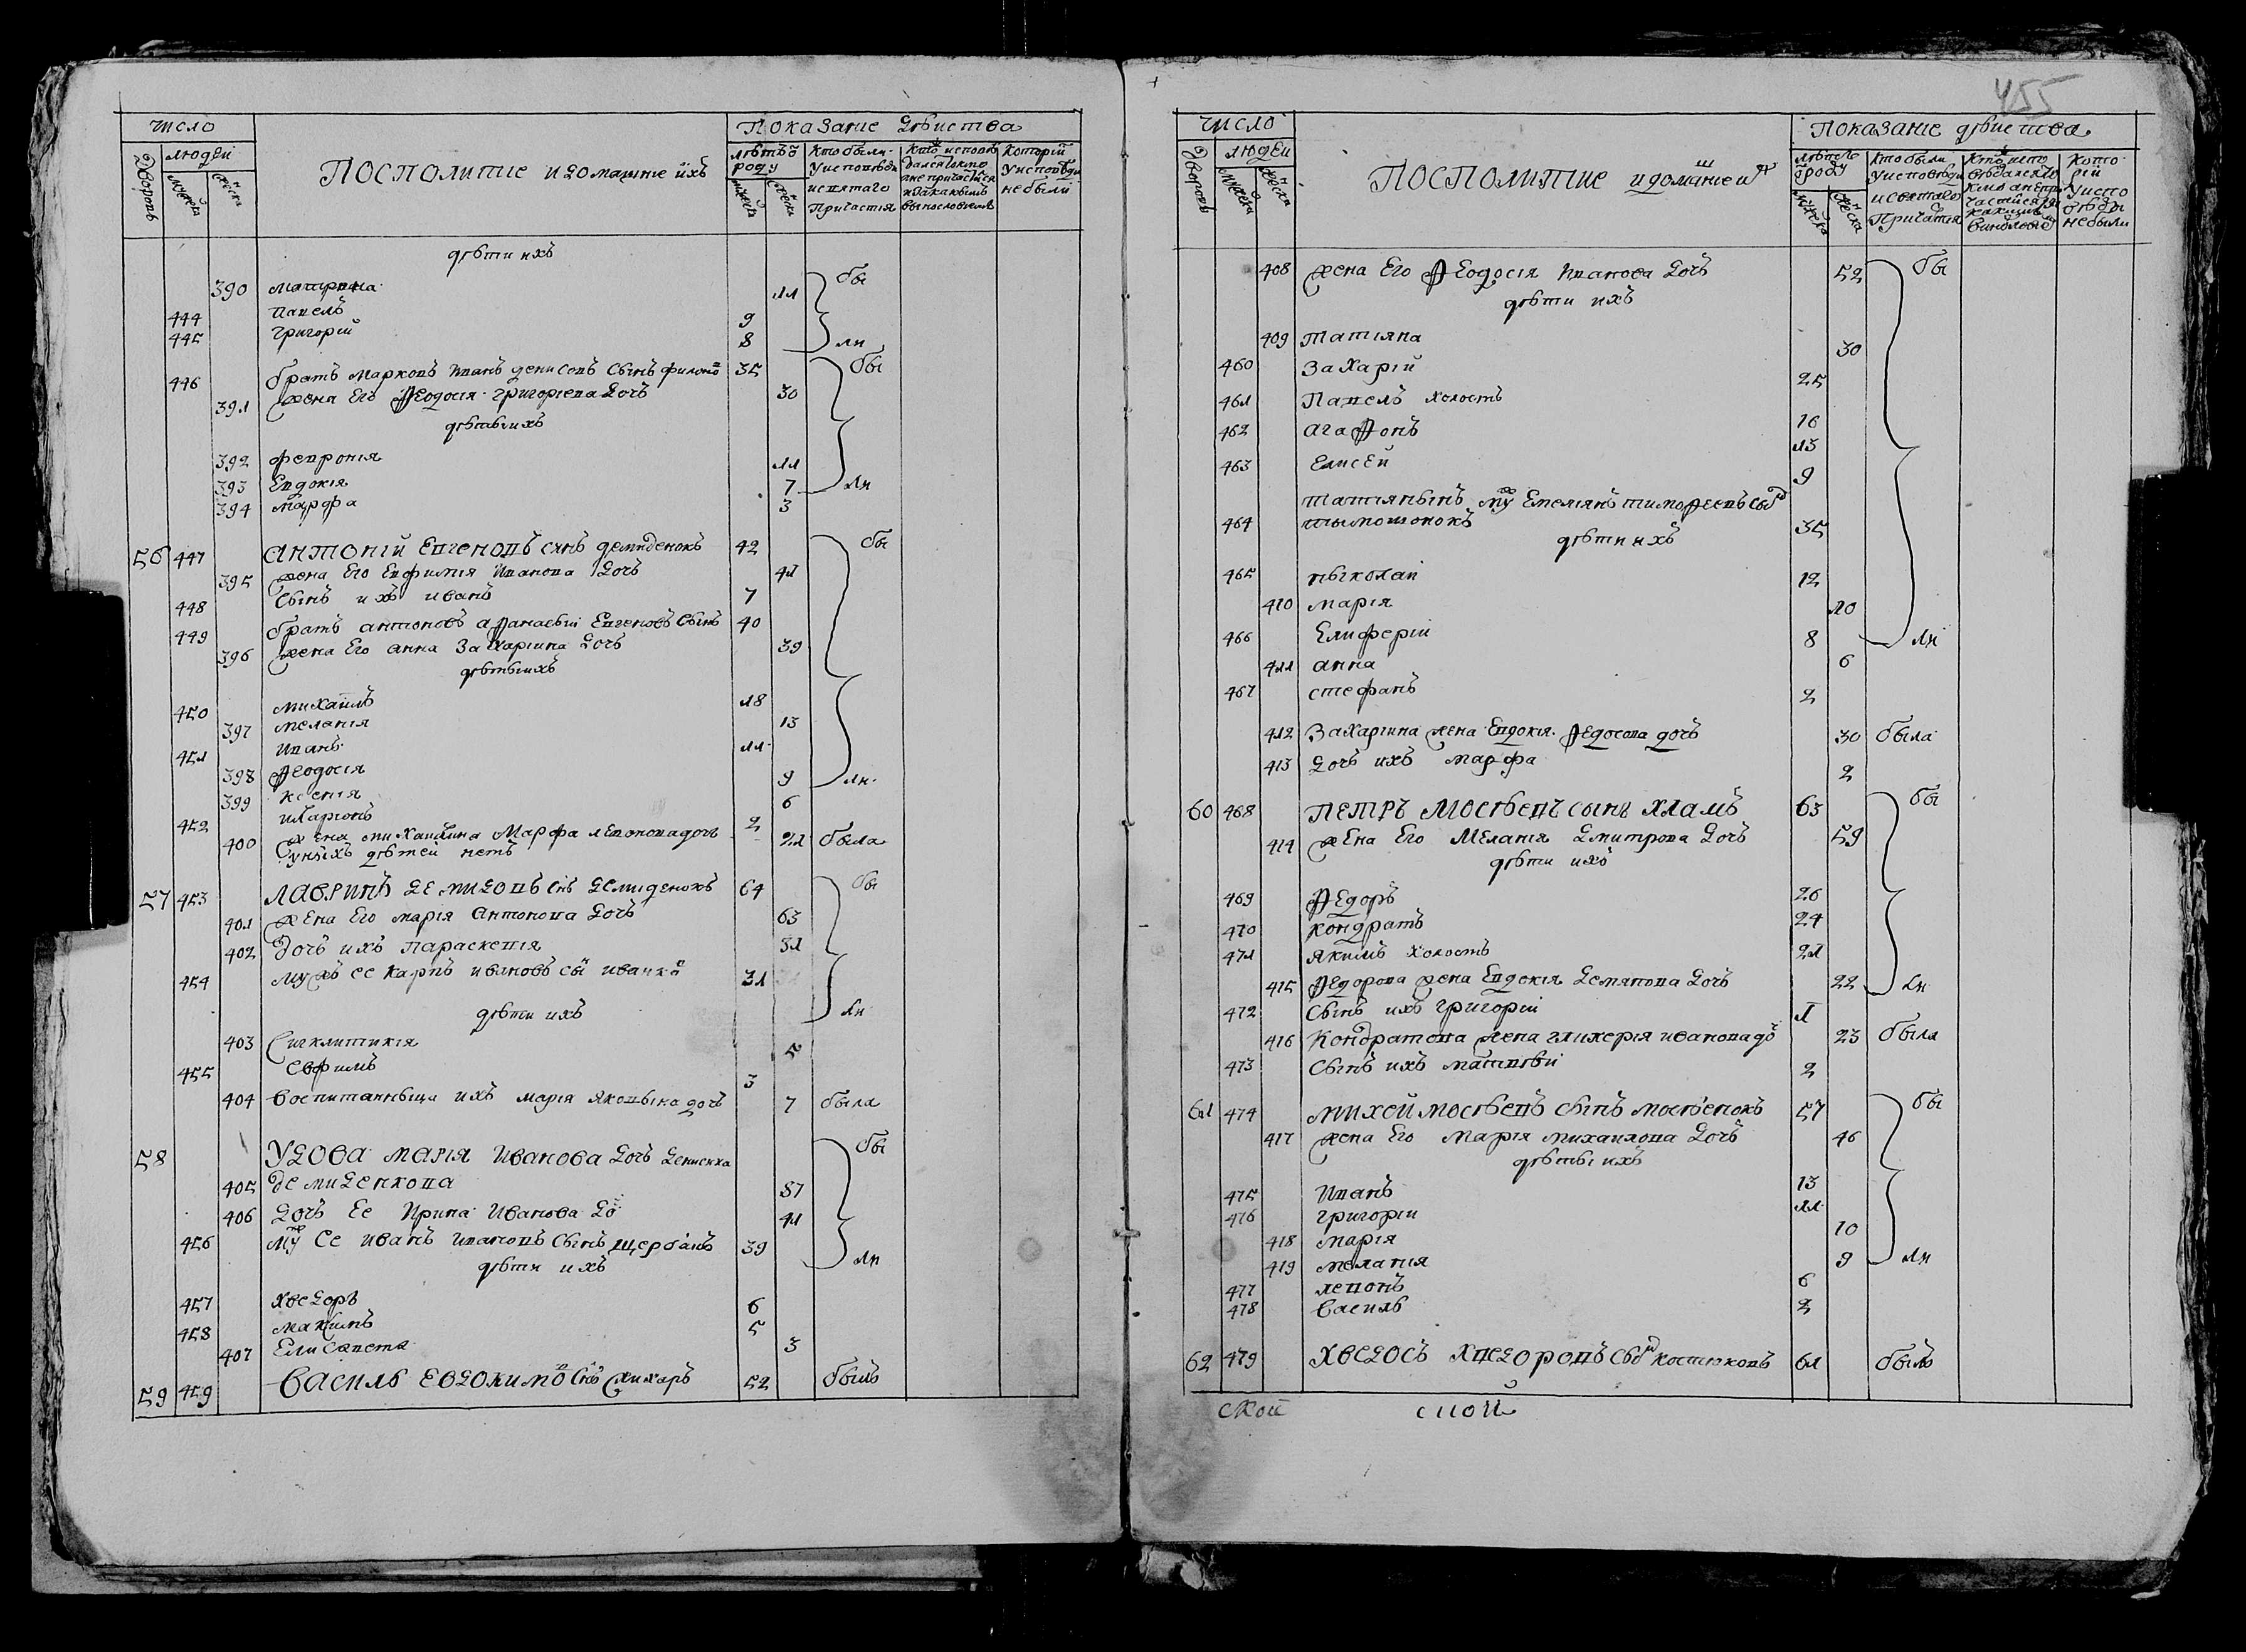 число
Показание дѣиства
Дворовъ
людей
мужеска
женска
ПОСПОЛИТІЕ и домашніе ихъ
лѣтъ ѿ роду
Кто были у исповѣди и святаго Причастія
Которіи у исповѣди не были
дѣти ихъ
390 матрона 11 бы
444 Павелъ 9
445 Григорій 8 ли
446 братъ марковъ Иванъ денисовъ сынъ 35 бы
391 жена Его Ѳеодосія Григоріева дочъ 30
дѣты ихъ
392 Февронія 11
393 Евдокія 7 ли
394 марфа 3
56 447 АНТОНІЙ Евгеновъ снъ демиденокъ 42 бы
395 жена Его Евфимія Иванова дочъ 41
448 сынъ ихъ иванъ 7
449 братъ антоновъ аѳанасій Евгеновъ сынъ 40
396 жена Его анна Захаріина дочъ 39
дѣты ихъ
450 михаилъ 18
397 меланія 13
451 Иванъ 11
398 Ѳеодосія 9 ли
399 ксенія 6
452 Иларіонъ 2
400 жена михаилина Марфа левонова дочъ 21 была
у ныхъ дѣтей нетъ
57 453 ЛАВРИНЪ ДЕМИДОВЪ снъ Демиденокъ 64 бы
401 жена Его марія Антонова дочъ 63
402 дочъ ихъ Параскевія 31
454 мужъ ее Карпъ ивановъ 31
дѣти ихъ ли
403 Сигклитикія 5
455 Евфимъ 3
404 воспитанныца ихъ марія Яковына дочъ 7 была
58 УДОВА МАРІЯ Иванова дочъ Дениcиха бы
405 демиденкова 87
406 дочъ Ее Ирина Иванова до 41
456 му Ее иванъ ивановъ сынъ щербанъ 39
дѣти ихъ ли
457 Хведоръ 6
458 максимъ 5
407 Елисавета 3
59 459 ВАСИЛЬ ЕВДОКИМО снъ 52 былъ
455
ЧИСЛО
Показаніе дѣиства
Дворовъ
людей
мужеска
женска
ПОСПОЛИТІЕ и домашніе их
лѣтъ ѿ роду
Кто были у исповѣди и святаго Причастія
Которій у исповѣды не были
408 жена Его Ѳеодосія Иванова дочъ 52 бы
дѣти ихъ
409 Татіяна 30
460 Захарій 25
461 Павелъ холостъ 16
462 агаѳонъ 13
463 Елисей 9
Татіянынъ му Емеліянъ тимоѳеевъ
464 тымошонокъ 35
дѣти ихъ
465 ныколай 12
410 марія 10
466 Елиферій 8 ли
411 анна 6
467 стефанъ 2
412 Захаріина жена Евдокія Ѳедосова дочъ 30 была
413 дочъ ихъ марфа 2
60 468 ПЕТРЪ Мосѣевъ сынъ ХЛАМЪ 63 бы
414 жЕна Его Меланія Дмитрова дочъ 59
дѣти ихъ
469 Ѳедоръ 26
470 кондратъ 24
471 якимъ холостъ 21
415 Ѳедорова жена Евдокія Демянова дочъ 22 ли
472 сынъ ихъ григорій 1
416 Кондратова жена гликерія иванова до 23 была
473 сынъ ихъ матвѣй 2
61 474 МИХЕЙ мосѣевъ сынъ мосѣенокъ 57 бы
417 жена Его Марія михаилова дочъ 46
дѣты ихъ
475 Иванъ 13
476 григорій 11
418 марія 10
419 меланія 9 ли
477 левонъ 6
478 василь 2
62 479 ХВЕДОСЪ ХВЕДОРОВЪ костюковъ 61 былъ
ской